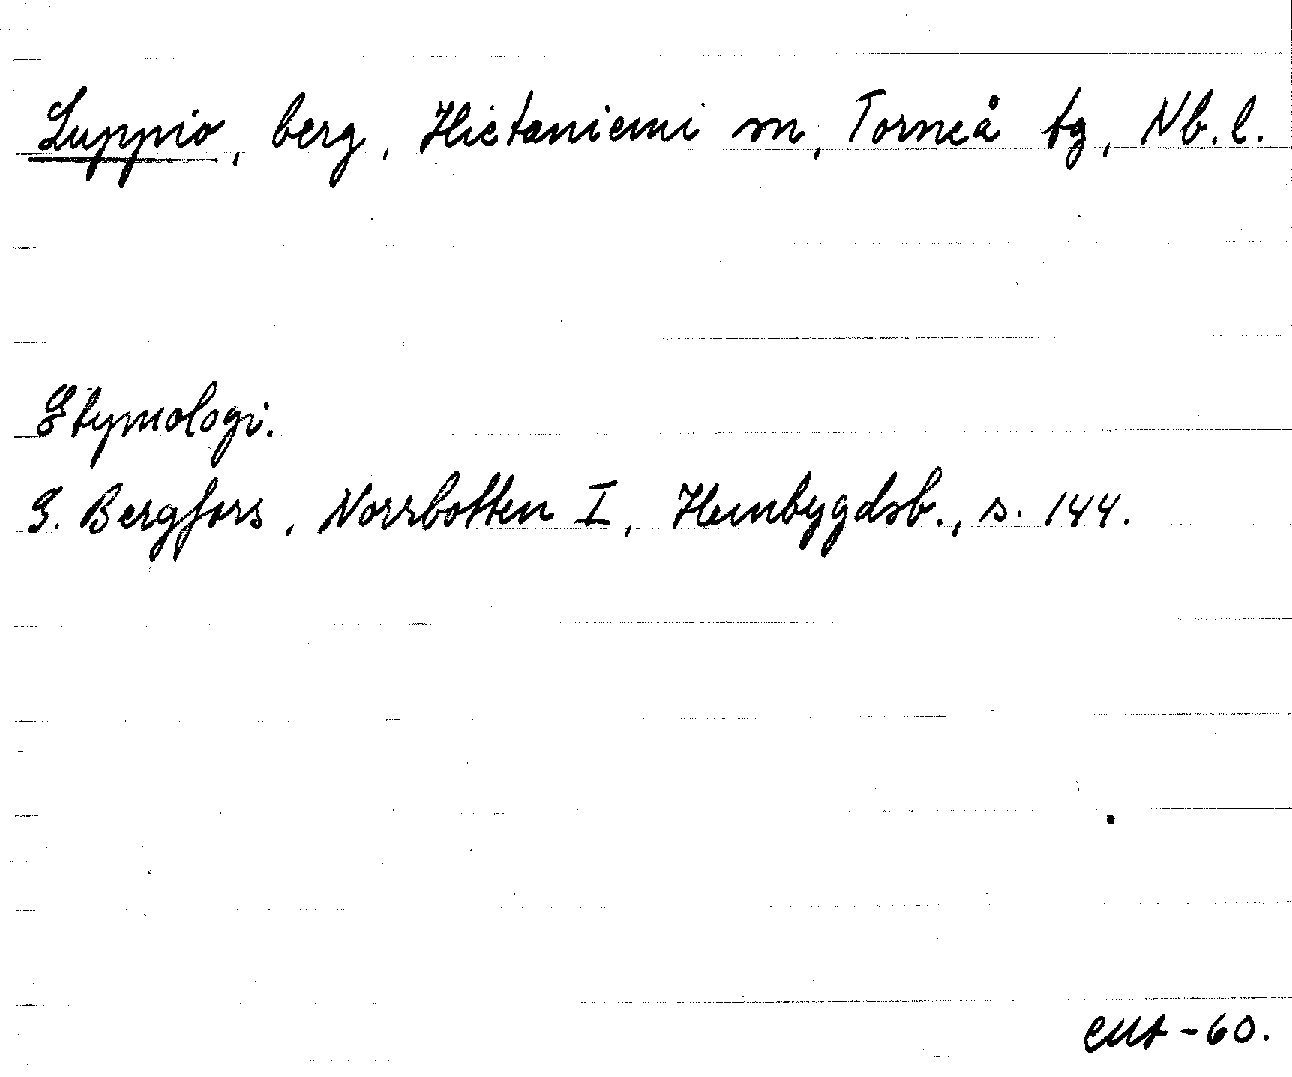 Luppio, berg, Hietaniemi sn, Torneå tg, Nb. l.
Etymologi.
G. Bergfors, Norrbotten I, Hembygdsb., s. 144.
EMA-60.